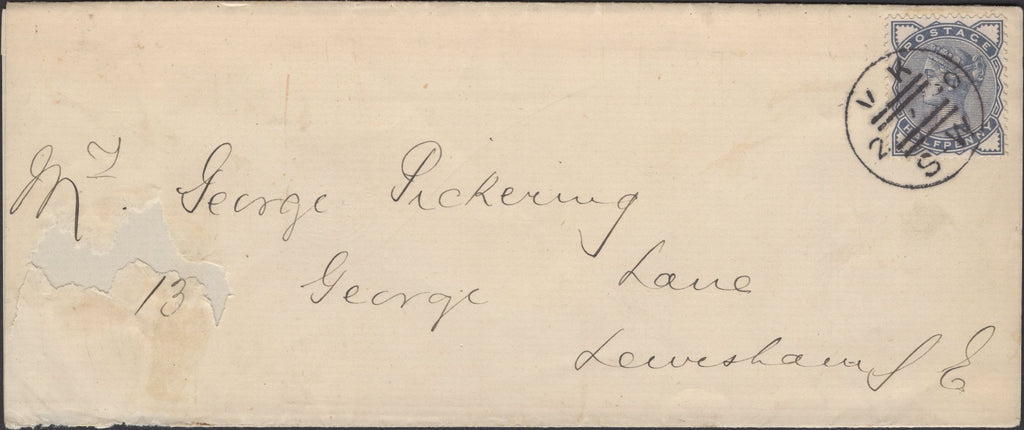 POSTAGE
HALFPENNY
Mr. George Pickering
13 George Lane
Lewisham S E